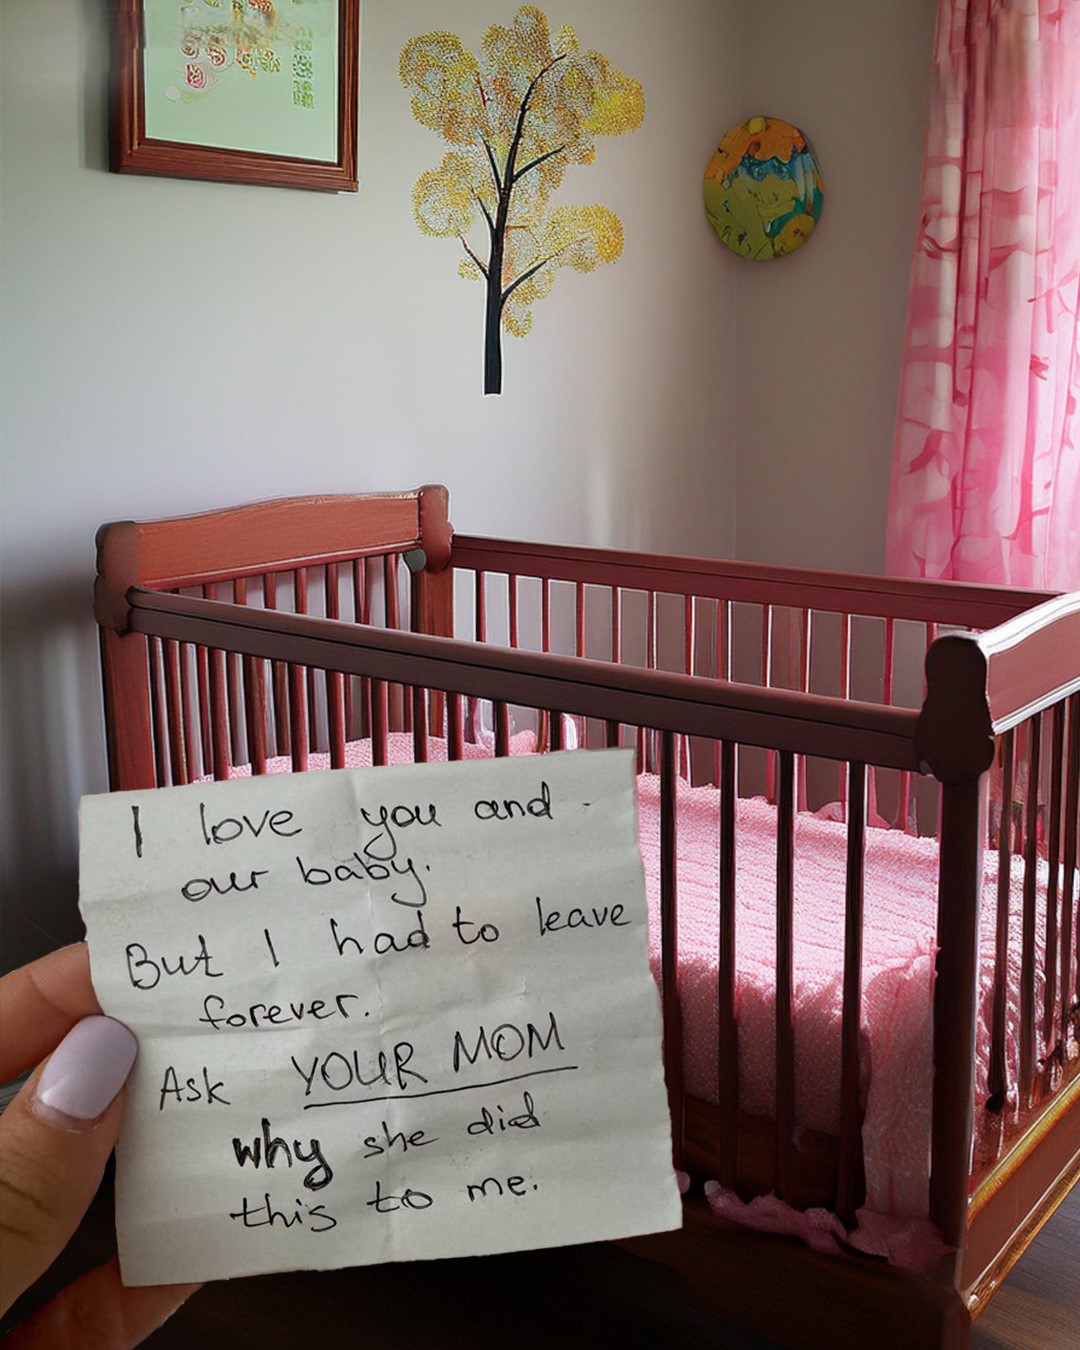 I love you and
our baby.
But I had to leave
forever.
Ask YOUR MOM
why she did
this to me.